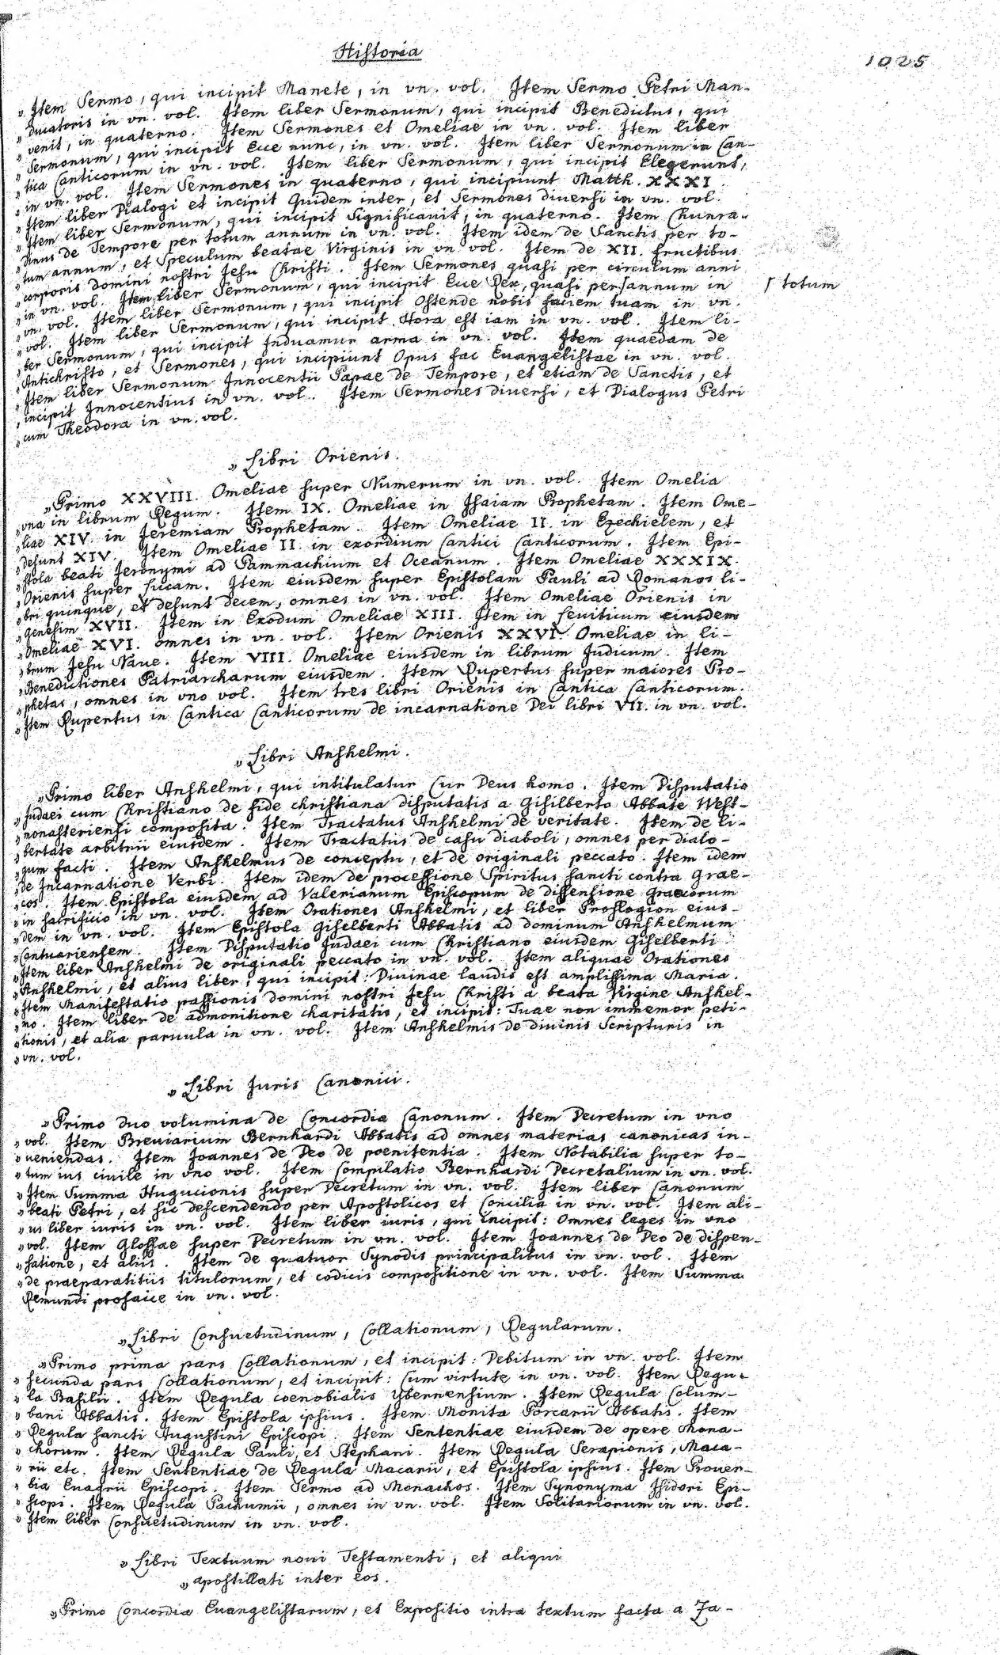 Historia
1025
„Item Sermo, qui incipit Manete, in vn. vol. Item Sermo Petri Man-
„ducatoris in vn. vol. Item liber Sermonum, qui incipit Benedictus, qui
„venit, in quaterno. Item Sermones et Omeliae in vn. vol. Item liber
„Sermonum, qui incipit Ecce nunc, in vn. vol. Item liber Sermonum in Can-
„tica Canticorum in vn. vol. Item liber Sermonum, qui incipit Elegerunt,
„in vn. vol. Item Sermones in quaterno, qui incipiunt Matth. XXXI.
„Item liber Dialogi et incipit Quidem inter, et Sermones diuersi in vn. vol.
„Item liber Sermonum, qui incipit Significauit, in quaterno. Item Chunra-
„dinus de Tempore per totum annum in vn. vol. Item idem de Sanctis per to-
„tum annum, et Speculum beatae Virginis in vn. vol. Item de XII. fructibus
„corporis Domini nostri Jesu Christi. Item Sermones quasi per circulum anni
„in vn. vol. Item liber Sermonum, qui incipit Ecce Rex, quasi per⌈annum in
⌈ totum
„vn. vol. Item liber Sermonum, qui incipit Ostende nobis faciem tuam in vn.
„vol. Item liber Sermonum, qui incipit Hora est iam in vn. vol. Item li-
„ber Sermonum, qui incipit Induamur arma in vn. vol. Item quaedam de
„Antichristo, et Sermones, qui incipiunt Opus fac Euangelistae in vn. vol.
„Item liber Sermonum Innocentii Papae de Tempore, et etiam de Sanctis, et
„incipit Innocentius in vn. vol. Item Sermones diuersi, et Dialogus Petri
„cum Theodora in vn. vol.
„Libri Orienis.
„Primo XXVIII. Omeliae super Numerum in vn. vol. Item Omelia
„vna in librum Regum. Item IX. Omeliae in Isaiam Prophetam. Item Ome-
„liae XIV. in Jeremiam Prophetam. Item Omeliae II. in Ezechielem, et
„desunt XIV. Item Omeliae II. in exordium Cantici Canticorum. Item Epi-
„stola beati Jeronymi ad Pammachium et Oceanum. Item Omeliae XXXIX.
„Orienis super Lucam. Item eiusdem super Epistolam Pauli ad Romanos li-
„bri quinque, et desunt decem, omnes in vn. vol. Item Omeliae Orienis in
„Genesim XVII. Item in Exodum Omeliae XIII. Item in Leuiticum eiusdem
„Omeliae XVI. omnes in vn. vol. Item Orienis XXVI. Omeliae in li-
„brum Jesu Naue. Item VIII. Omeliae eiusdem in librum Judicum. Item
„Benedictiones Patriarcharum eiusdem. Item Rupertus super maiores Pro-
„phetas, omnes in vno vol. Item tres libri Orienis in Cantica Canticorum.
„Item Rupertus in Cantica Canticorum de incarnatione Dei libri VII. in vn. vol.
„Libri Anshelmi.
„Primo liber Anshelmi, qui intitulatur Cur Deus homo. Item Disputatio
„Judaei cum Christiano de fide christiana disputatis a Gisilberto Abbate West-
„monasteriensi composita. Item Tractatus Anshelmi de veritate. Item de li-
„bertate arbitrii eiusdem. Item Tractatus de casu diaboli, omnes per dialo-
„gum facti. Item Anshelmus de conceptu, et de originali peccato. Item idem
„de Incarnatione Verbi. Item idem de processione Spiritus sancti contra Grae-
„cos. Item Epistola eiusdem ad Valerianum Episcopum de dissensione Graecorum
„in sacrificio in vn. vol. Item Orationes Anshelmi, et liber Proslogion eius-
„dem in vn. vol. Item Epistola Giselberti Abbatis ad dominum Anshelmum
„Cantuariensem. Item Disputatio Judaei cum Christiano eiusdem Giselberti.
„Item liber Anshelmi de originali peccato in vn. vol. Item aliquae Orationes
„Anshelmi, et alius liber, qui incipit: Diuinae laudis est amplissima Maria.
„Item Manifestatio passionis domini nostri Jesu Christi a beata Virgine Anshel-
„mo. Item liber de admonitione charitatis, et incipit: Tuae non immemor peti-
„tionis, et alia paruula in vn. vol. Item Anshelmis de diuinis Scripturis in
„vn. vol.
„Libri Juris Canonici.
„Primo duo volumina de Concordia Canonum. Item Decretum in vno
„vol. Item Breuiarium Bernhardi Abbatis ad omnes materias canonicas in-
„ueniendas. Item Joannes de Deo de poenitentia. Item Notabilia super to-
„tum ius ciuile in vno vol. Item Compilatio Bernhardi Decretalium in vn. vol.
„Item Summa Hugucionis super Decretum in vn. vol. Item liber Canonum
„beati Petri, et sic descendendo per Apostolicos et Concilia in vn. vol. Item ali-
„us liber iuris in vn. vol. Item liber iuris, qui incipit: Omnes leges in vno
„vol. Item Glossae super Decretum in vn. vol. Item Joannes de Deo de dispen-
„satione, et aliis. Item de quatuor Synodis principalibus in vn. vol. Item
„de praeparatitiis titulorum, et codicis compositione in vn. vol. Item Summa
Remundi prosaice in vn. vol.
„Libri Consuetudinum, Collationum, Regularum.
„Primo prima pars Collationum, et incipit: Debitum in vn. vol. Item
„secunda pars Collationum, et incipit: Cum virtute in vn. vol. Item Regu-
„la Basilii. Item Regula coenobialis ybernensium. Item Regula Colum-
„bani Abbatis. Item Epistola ipsius. Item Monita Porcarii Abbatis. Item
„Regula sancti Augustini Episcopi. Item Sententiae eiusdem de opere Mona-
„chorum. Item Regula Pauli, et Stephani. Item Regula Serapionis, Maca-
„rii etc. Item Sententiae de Regula Macarii, et Epistola ipsius. Item Prouer-
„bia Euagrii Episcopi. Item Sermo ad Monachos. Item Synonyma Isidori Epi-
„scopi. Item Regula Pachumii, omnes in vn. vol. Item Solitariorum in vn. vol.
„Item liber Consuetudinum in vn. vol.
„Libri Textuum noui Testamenti, et aliqui
„apostillati inter eos.
„Primo Concordia Euangelistarum, et Expositio intra textum facta a Za-